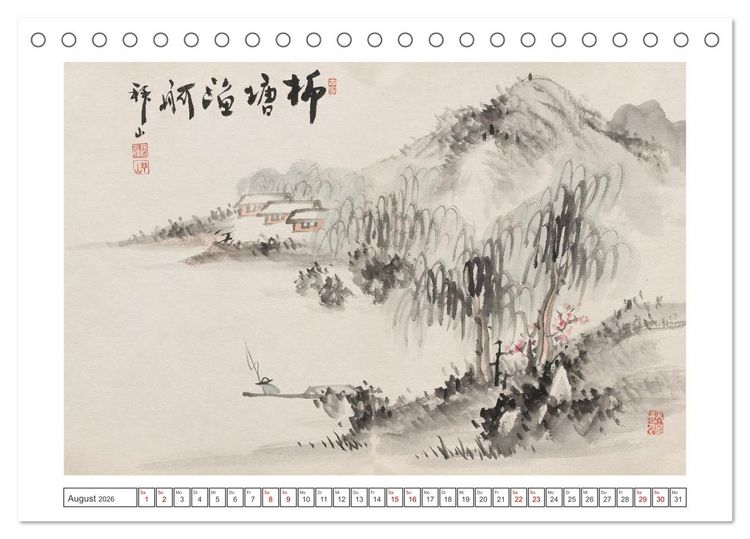 柳塘漁舸
山
August 2026
Sa So Mo Di Mi Do Fr Sa So Mo Di Mi Do Fr Sa So Mo Di Mi Do Fr Sa So Mo Di Mi Do Fr Sa So Mo
1 2 3 4 5 6 7 8 9 10 11 12 13 14 15 16 17 18 19 20 21 22 23 24 25 26 27 28 29 30 31